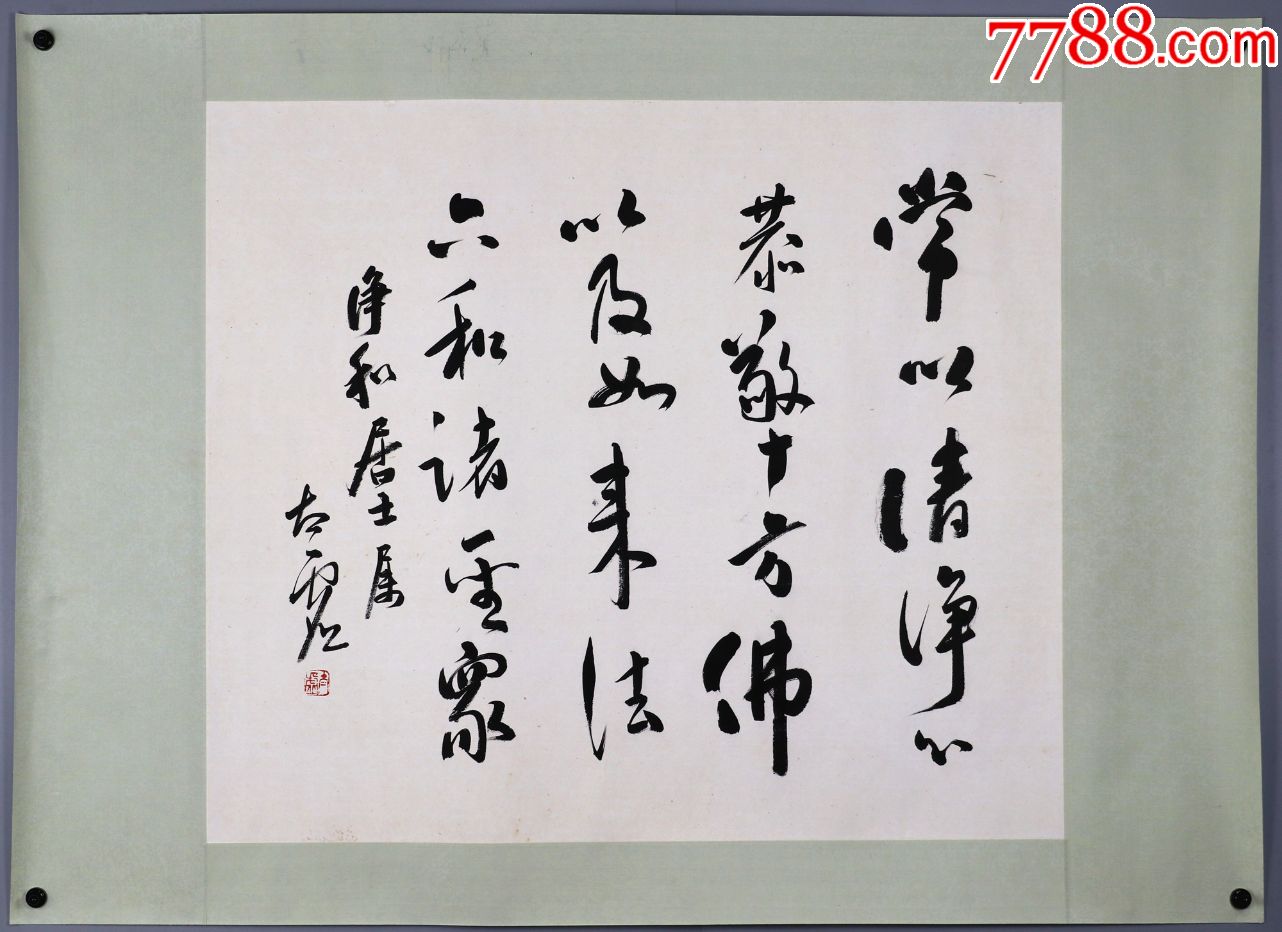 7788.com
常以清淨心
恭敬十方佛
以及如来法
六和諸聖眾
淨和居士属
太虛